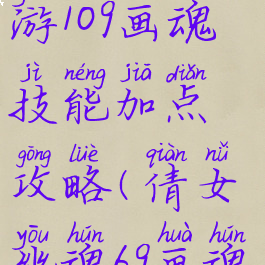 游109画魂
jì néng jiā diǎn
技能加点
gōng lüè qiàn nǚ
攻略(倩女
yōu hún huà hún
幽魂69画魂